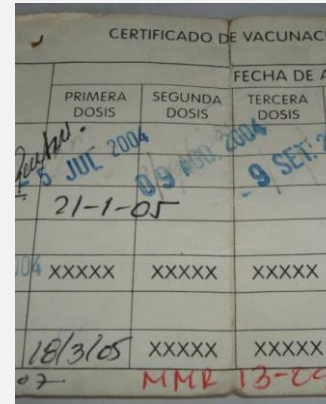 CERTIFICADO DE VACUNAC
FECHA DE A
PRIMERA DOSIS
SEGUNDA DOSIS
TERCERA DOSIS
5 JUL 2004
09 AGO. 2004
-9 SET. 2
21-1-05
04 XXXXX XXXXX XXXXX
18/3/05 XXXXX XXXXX
07 MMR 13-